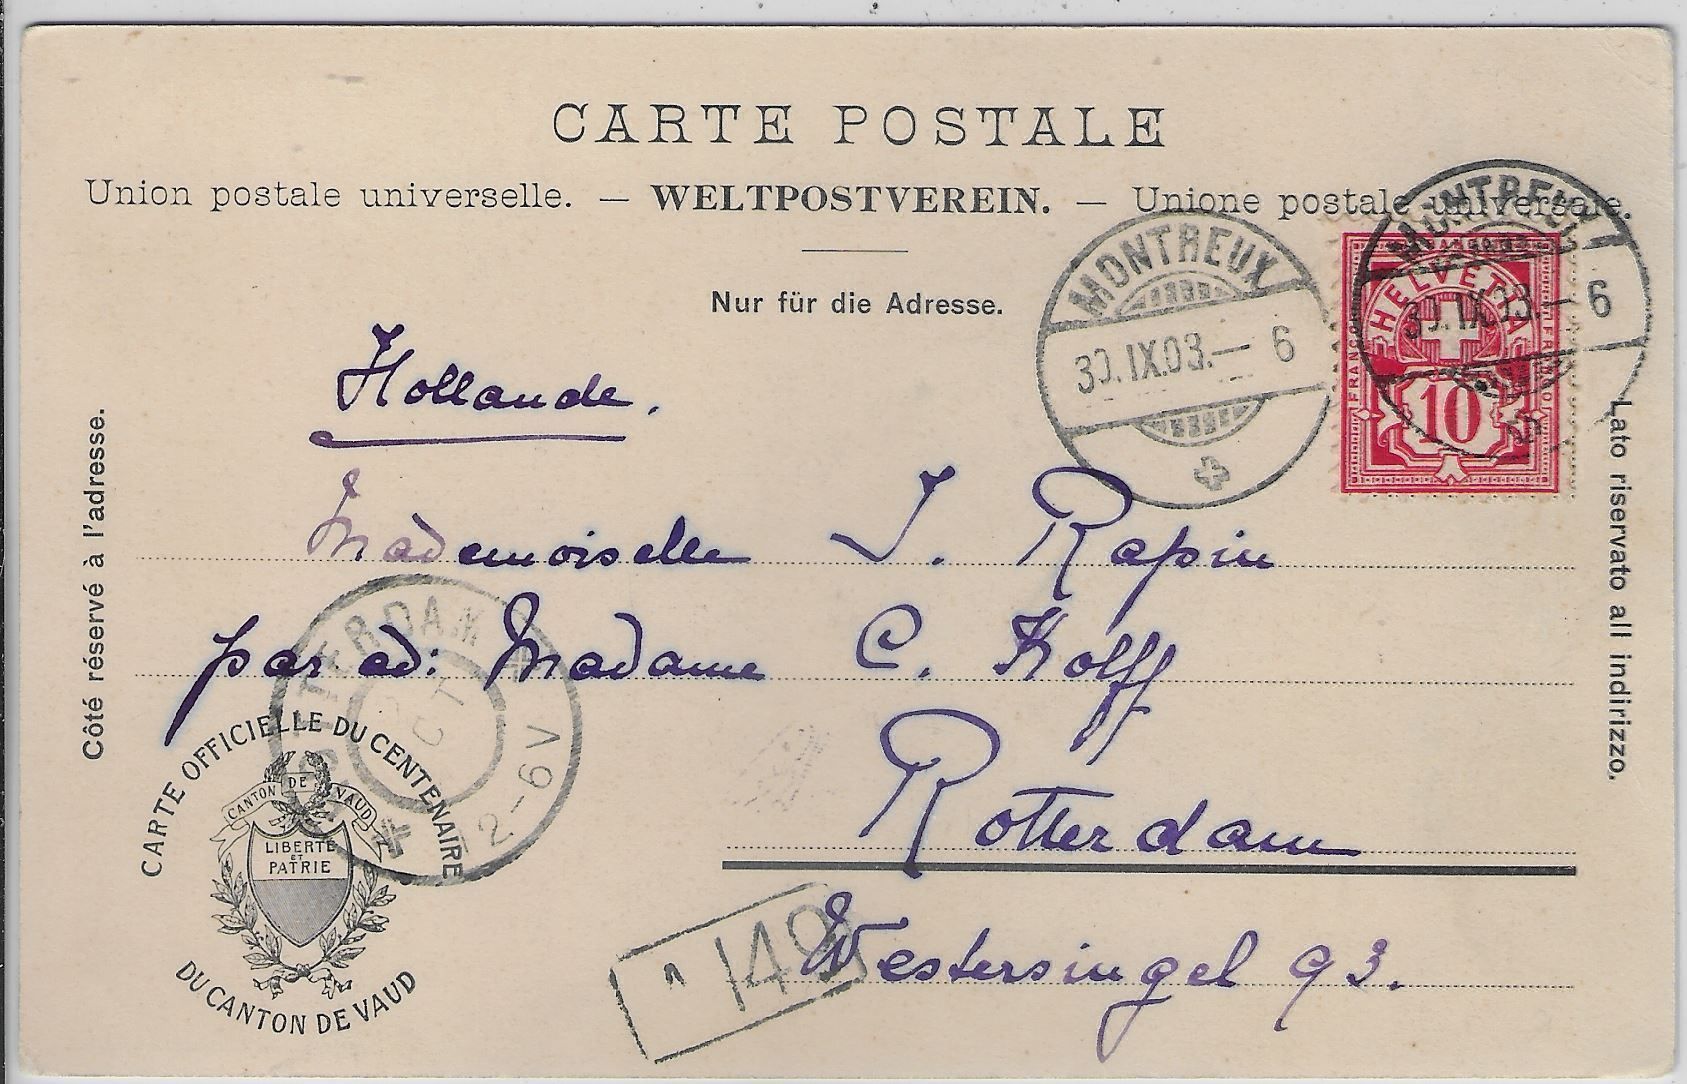 CARTE POSTALE
Union postale universelle. — WELTPOSTVEREIN. — Unione postale universale.
Nur für die Adresse.
MONTREUX
30.IX.03.— 6
MONTREUX
30.IX.03.— 6
HELVETIA
FRANCO
FRANCO
10
Côté réservé à l'adresse.
Lato riservato all indirizzo.
Hollande.
Mademoiselle J. Rapin
par ad: Madame C. Kolff
Rotterdam
Westersingel 93.
TERDAM
12-6V
CARTE OFFICIELLE DU CENTENAIRE
CANTON DE VAUD
LIBERTÉ
ET
PATRIE
DU CANTON DE VAUD
149